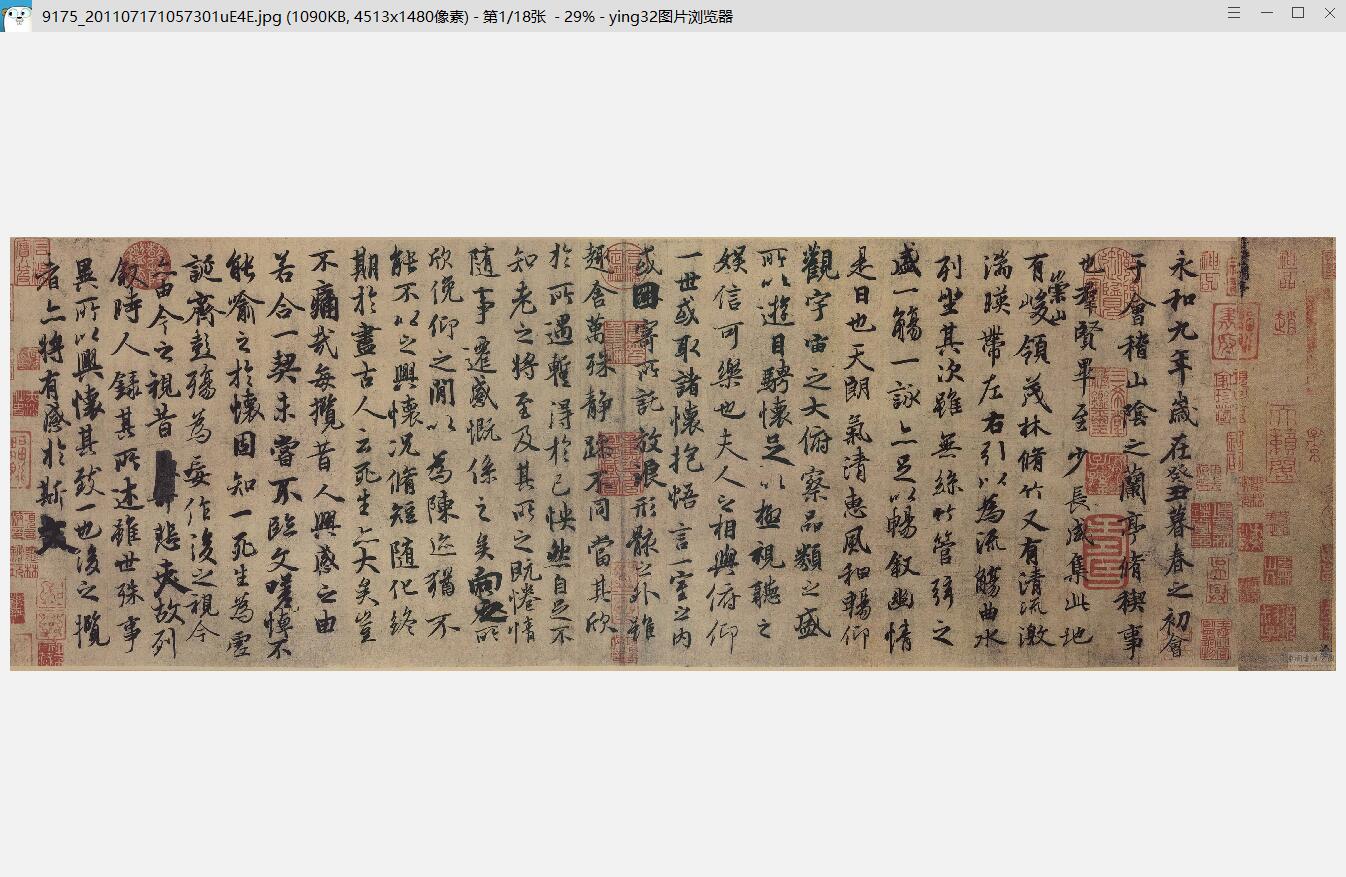 9175_201107171057301uE4E.jpg (1090KB, 4513x1480像素) - 第1/18张  - 29% - ying32图片浏览器
永和九年歲在癸丑暮春之初會
于會稽山陰之蘭亭脩稧事
也羣賢畢至少長咸集此地
有崇山峻領茂林脩竹又有清流激
湍暎帶左右引以為流觴曲水
列坐其次雖無絲竹管弦之
盛一觴一詠亦足以暢叙幽情
是日也天朗氣清惠風和暢仰
觀宇宙之大俯察品類之盛
所以遊目騁懷足以極視聽之
娛信可樂也夫人之相與俯仰
一世或取諸懷抱悟言一室之內
或因寄所託放浪形骸之外雖
趣舍萬殊静躁不同當其欣
於所遇暫得於己怏然自足不
知老之將至及其所之既惓情
隨事遷感慨係之矣向之所
欣俛仰之閒以為陳迹猶不
能不以之興懷況脩短隨化終
期於盡古人云死生亦大矣豈
不痛哉每攬昔人興感之由
若合一契未嘗不臨文嗟悼不
能喻之於懷固知一死生為虛
誕齊彭殤為妄作後之視今
亦由今之視昔悲夫故列
叙時人錄其所述雖世殊事
異所以興懷其致一也後之攬
者亦將有感於斯文